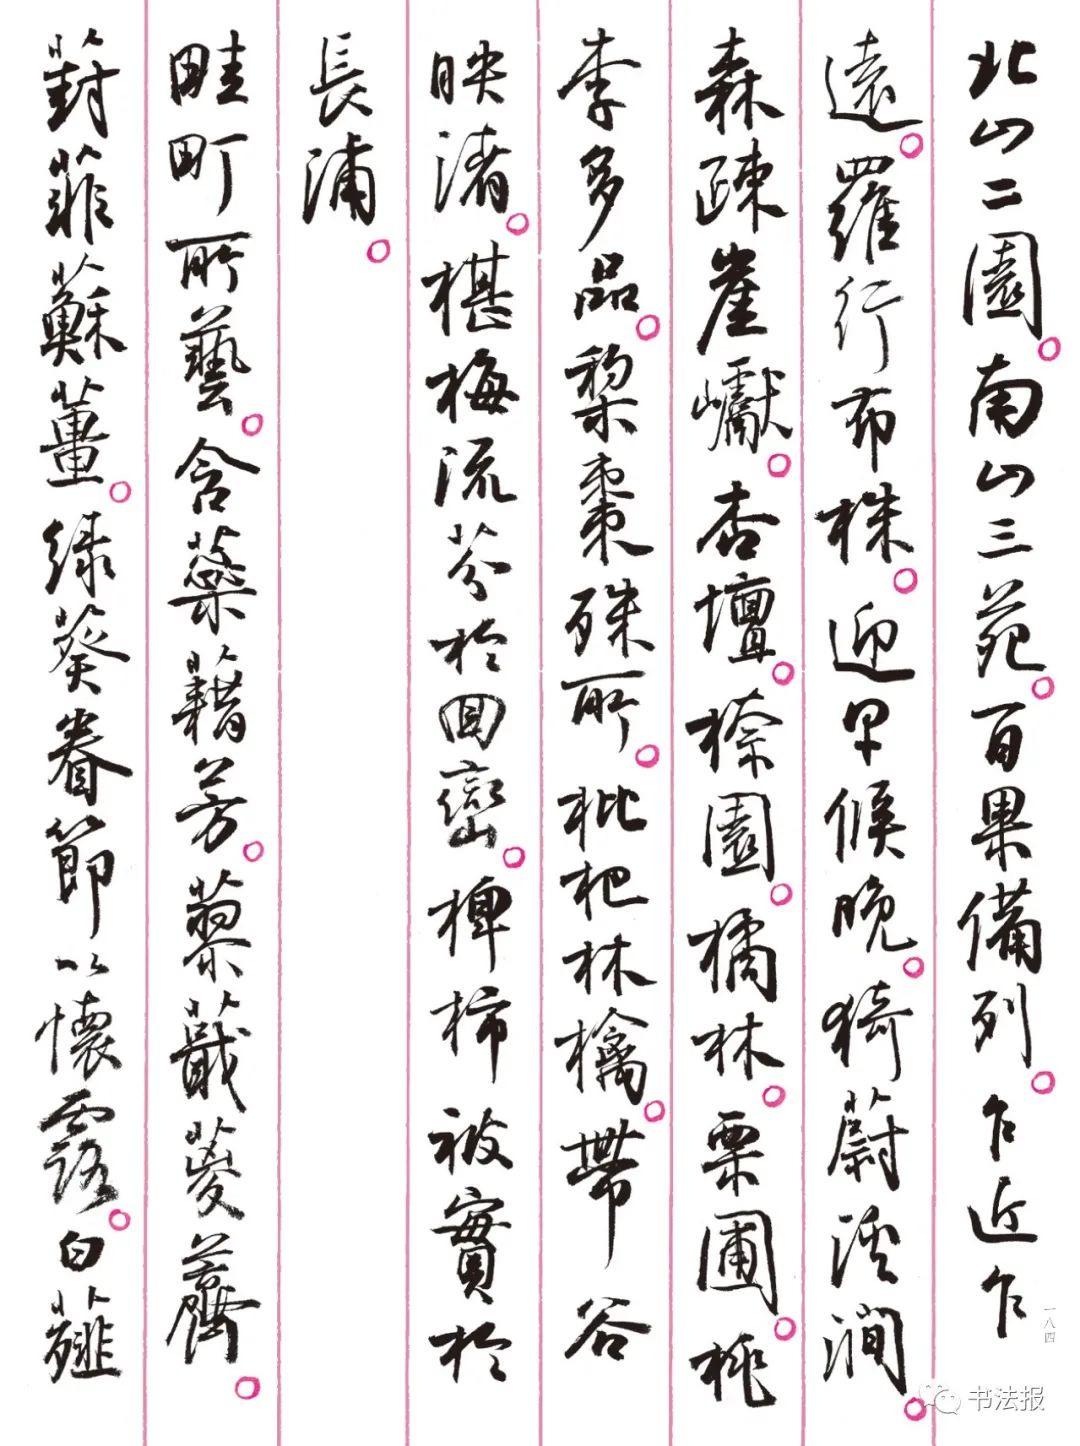 北山二園。南山三苑。百果備列。乍近乍
遠。羅行布株。迎早候晚。猗蔚溪澗。
森疎崖巘。杏壇。㮈園。橘林。栗圃。桃
李多品。梨棗殊所。枇杷林檎。帶谷
映渚。椹梅流芬於回巒。椑柿被實於
長浦。
畦町所藝。含蘂藉芳。蓼蕺葼薺。
葑菲蘇薑。綠葵眷節以懷露。白薤
一八四
书法报